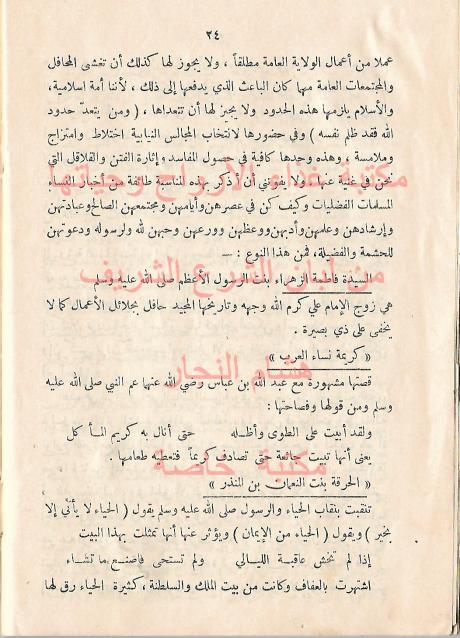 ٢٤
عملا من أعمال الولاية العامة مطلقاً ، ولا يجوز لها كذلك أن تغشى المحافل
والمجتمعات العامة مهما كان الباعث الذي يدفعها إلى ذلك ، لأننا أمة اسلامية،
والأسلام يلزمها هذه الحدود ولا يجيز لها أن تتعداها ، ( ومن يتعدّ حدود
الله فقد ظلم نفسه ) وفي حضورها لانتخاب المجالس النيابية اختلاط وامتزاج
وملامسة ، وهذه وحدها كافية في حصول المفاسد وإثارة الفتن والقلاقل التي
نحن في غنية عنها ولا يفوتني أن أذكر بهذه المناسبة طائفة من أخبار النساء
المسلمات الفضليات وكيف كن في عصرهن وأيامهن ومجتمعهن الصالح وعبادتهن
وإرشادهن وعلمهن وأدبهن ووعظهن وورعهن وحبهن لله ولرسوله ودعوتهن
للحشمة والفضيلة، فمن هذا النوع : —
السيدة فاطمة الزهراء بنت الرسول الأعظم صلى الله عليه وسلم
هي زوج الإمام علي كرم الله وجهه وتاريخها المجيد حافل بجلائل الأعمال كما لا
يخفى على ذي بصيرة .
« كريمة نساء العرب »
قصتها مشهورة مع عبد الله بن عباس رضي الله عنهما عم النبي صلى الله عليه
وسلم ومن قولها وفصاحتها :
ولقد أبيت على الطوى وأظله حتى أنال به كريم المأكل
يعنى أنها تبيت جائعة حتى تصادف كريماً فتعطيه طعامها .
« الحرقة بنت النعمان بن المنذر »
تنقبت بنقاب الحياء والرسول صلى الله عليه وسلم يقول ( الحياء لا يأتي إلا
بخير ) ويقول ( الحياء من الإيمان ) ويؤثر عنها أنها تمثلت بهذا البيت
إذا لم تخش عاقبة الليالي ولم تستحى فاصنع ما تشاء
اشتهرت بالعفاف وكانت من بيت الملك والسلطنة ، كثيرة الحياء رق لها
مكتبة غذاء الأرواح وحياتها
من لبان الشرع الشريف
هشام النجار
مكتبة خاصة